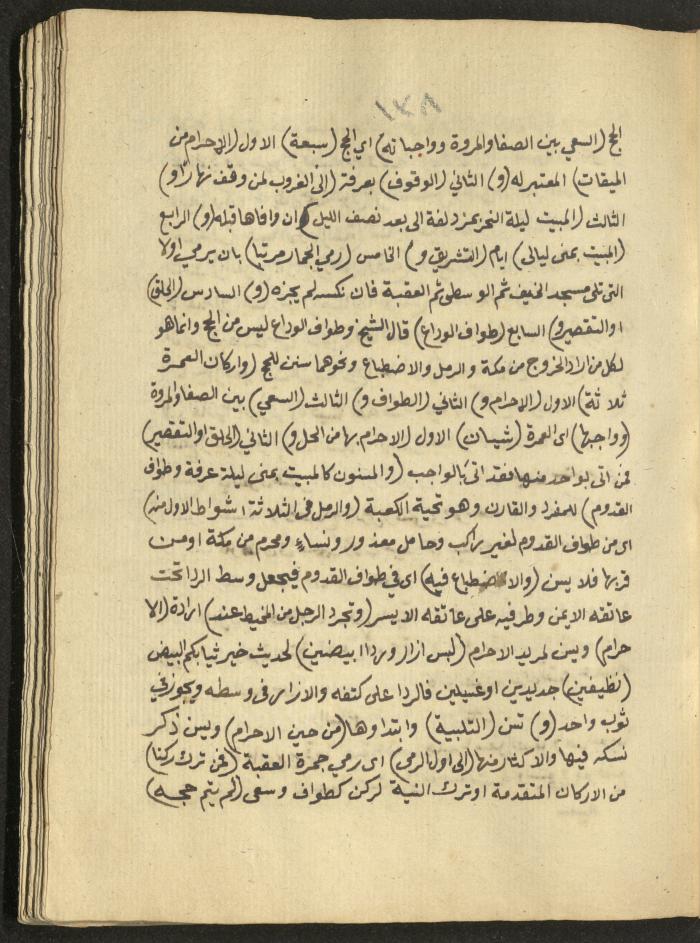 الحج (السعي بين الصفا والمروة وواجباته) اي الحج (سبعة) الاول (الاحرام من
الميقات) المعتبر له (و) الثاني (الوقوف) بعرفة (الى الغروب لمن وقف نهارا و)
الثالث (المبيت ليلة النحر بمزدلفة الى بعد نصف الليل) ان وافاها قبله (و) الرابع
(المبيت بمنى ليالي) ايام (التشريق و) الخامس (رمي الجمار مرتبا) بان يرمي اولا
التى تلى مسجد الخيف ثم الوسطى ثم العقبة فان نكسه لم يجزه (و) السادس (الحلق
او التقصير و) السابع (طواف الوداع) قال الشيخ وطواف الوداع ليس من الحج وانما هو
لكل من اراد الخروج من مكة والرمل والاضطباع ونحوهما سنن للحج (واركان العمرة
ثلاثة) الاول (الاحرام و) الثاني (الطواف و) الثالث (السعي) بين الصفا والمروة
(وواجبها) اى العمرة (شيئان) الاول (الاحرام بها من الحل و) الثاني (الحلق او التقصير)
فمن اتى بواحد منها فقد اتى بالواجب (والمسنون كالمبيت بمنى ليلة عرفة وطواف
القدوم) للمفرد والقارن وهو تحية الكعبة (والرمل فى الثلاثة اشواط الاول منه)
اى من طواف القدوم لغير راكب وحامل معذور ونساء ومحرم من مكة او من
قربها فلا يسن (والاضطباع فيه) اى في طواف القدوم فيجعل وسط الردا تحت
عاتقه الايمن وطرفيه على عاتقه الايسر (وتجرد الرجل من المخيط عند) ارادة (الا
حرام) ويسن لمريد الاحرام (لبس ازار وردا ابيضين) لحديث خير ثيابكم البيض
(نظيفين) جديدين او غسيلين فالردا على كتفه والازار فى وسطه ويجوز في
ثوب واحد (و) تسن (التلبية) وابتداوها (من حين الاحرام) ويسن ذكر
نسكه فيها والاكثار منها (الى اول الرمي) اى رمي جمرة العقبة (فمن ترك ركنا)
من الاركان المتقدمة او ترك النية لركن كطواف وسعى (لم يتم حجه)